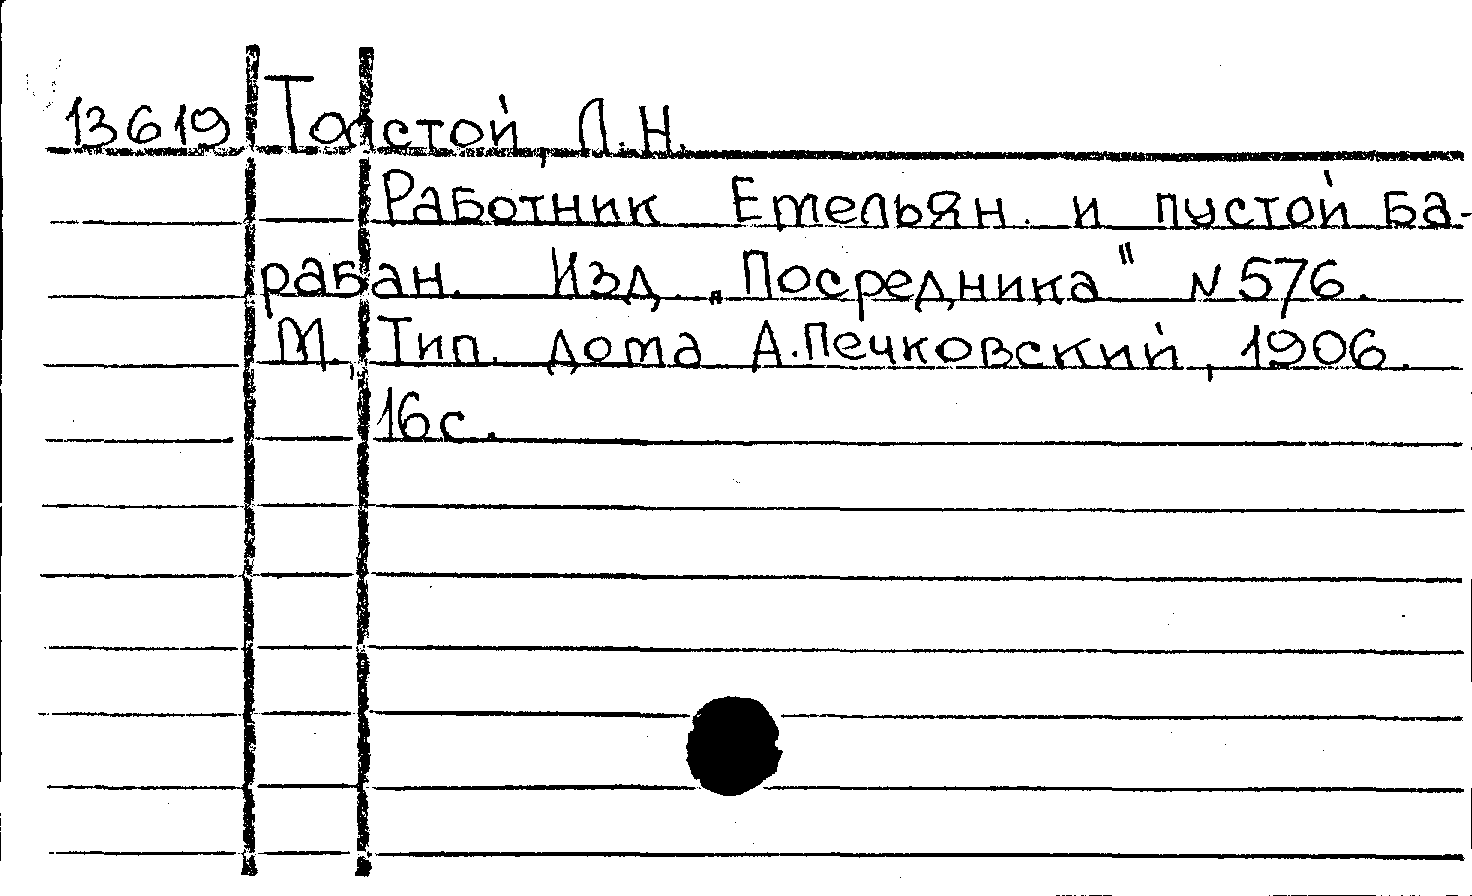 13619 Толстой, Л.Н.
Работник Емельян и пустой ба-
рабан. Изд. „Посредника" N 576.
М., Тип. дома А.Печковский, 1906.
16 с.